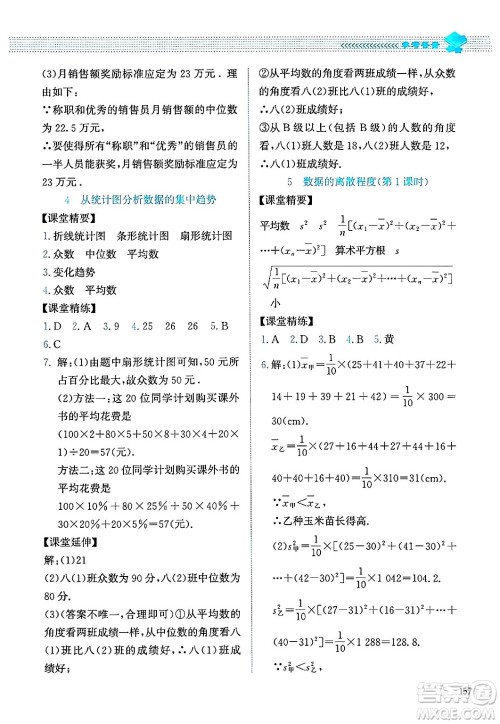 参考答案
(3)月销售额奖励标准应定为 23 万元．理
由如下：
∵称职和优秀的销售员月销售额的中位数
为 22.5 万元，
∴要使得“称职”和“优秀”的销售员的
一半人员能获奖，月销售额奖励标准应定为
23 万元．
4 从统计图分析数据的集中趋势
【课堂精要】
1. 折线统计图 条形统计图 扇形统计图
2. 众数 中位数 平均数
3. 变化趋势
4. 众数 平均数
【课堂精练】
1. D 2. A 3. 9 4. 25 26 26 5. B
6. C
7. 解：(1)由题中扇形统计图可知，50 元所
占百分比最大，故众数为 50 元．
(2)方法一：这 20 位同学计划购买课外
书的平均花费是
(100×2＋80×5＋50×8＋30×4＋20×
1)÷20＝57(元)．
方法二：这 20 位同学计划购买课外书的
平均花费是
100×10％＋80×25％＋50×40％＋30×
20％＋20×5％＝57(元)．
【课堂延伸】
解：(1)21
(2)八(1)班众数为 90 分，八(2)班中位数为
80 分．
(3)（答案不唯一，合理即可）①从平均数的
角度看两班成绩一样，从中位数的角度看八
(1)班比八(2)班的成绩好，∴八(1)班
成绩好；
②从平均数的角度看两班成绩一样，从众数
的角度看八(2)班比八(1)班的成绩好，
∴八(2)班成绩好；
③从 B 级以上（包括 B 级）的人数的角度
看，八(1)班人数是 18，八(2)班人数是 12，
∴八(1)班成绩好．
5 数据的离散程度(第 1 课时)
【课堂精要】
平均数 s² s² 1/n[(x₁－x̄)²＋(x₂－x̄)²
＋⋯＋(xₙ－x̄)²] 算术平方根 s
√(1/n[(x₁－x̄)²＋(x₂－x̄)²＋⋯＋(xₙ－x̄)²])
小
【课堂精练】
1. A 2. D 3. B 4. B 5. 黄
6. 解：(1)x̄甲＝1/10×(25＋41＋40＋37＋22＋
14＋19＋39＋21＋42)＝1/10×300＝
30(cm)．
x̄乙＝1/10×(27＋16＋44＋27＋44＋16＋
40＋40＋16＋40)＝1/10×310＝31(cm)．
∵x̄甲＜x̄乙，
∴乙种玉米苗长得高．
(2)s²甲＝1/10×[(25－30)²＋(41－30)²＋
⋯＋(42－30)²]＝1/10×1 042＝104.2，
s²乙＝1/10×[(27－31)²＋(16－31)²＋⋯＋
(40－31)²]＝1/10×1 288＝128.8．
∵s²甲＜s²乙，
157